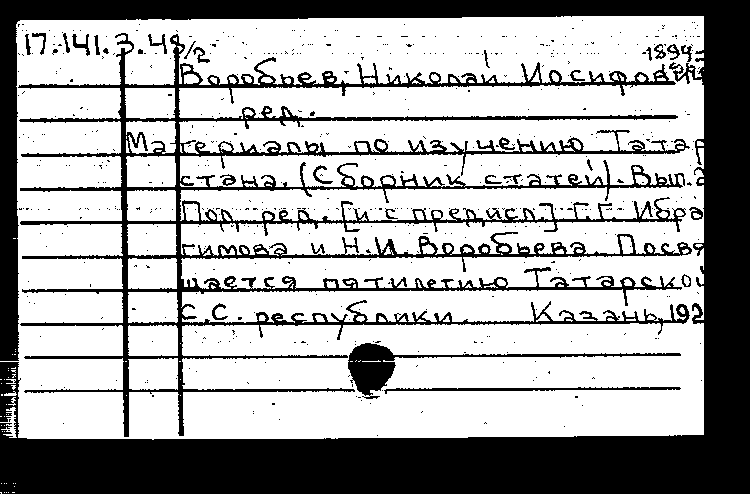 17.141.3.48/2
1894-
Воробьев, Николай Иосифович
ред.
Материалы по изучению Татар
стана. (Сборник статей). Вып. 2
Под ред. [и с предисл.] Г.Г. Ибра
гимова и Н.И. Воробьева. Посвя
щается пятилетию Татарской
С.С. республики. Казань, 192